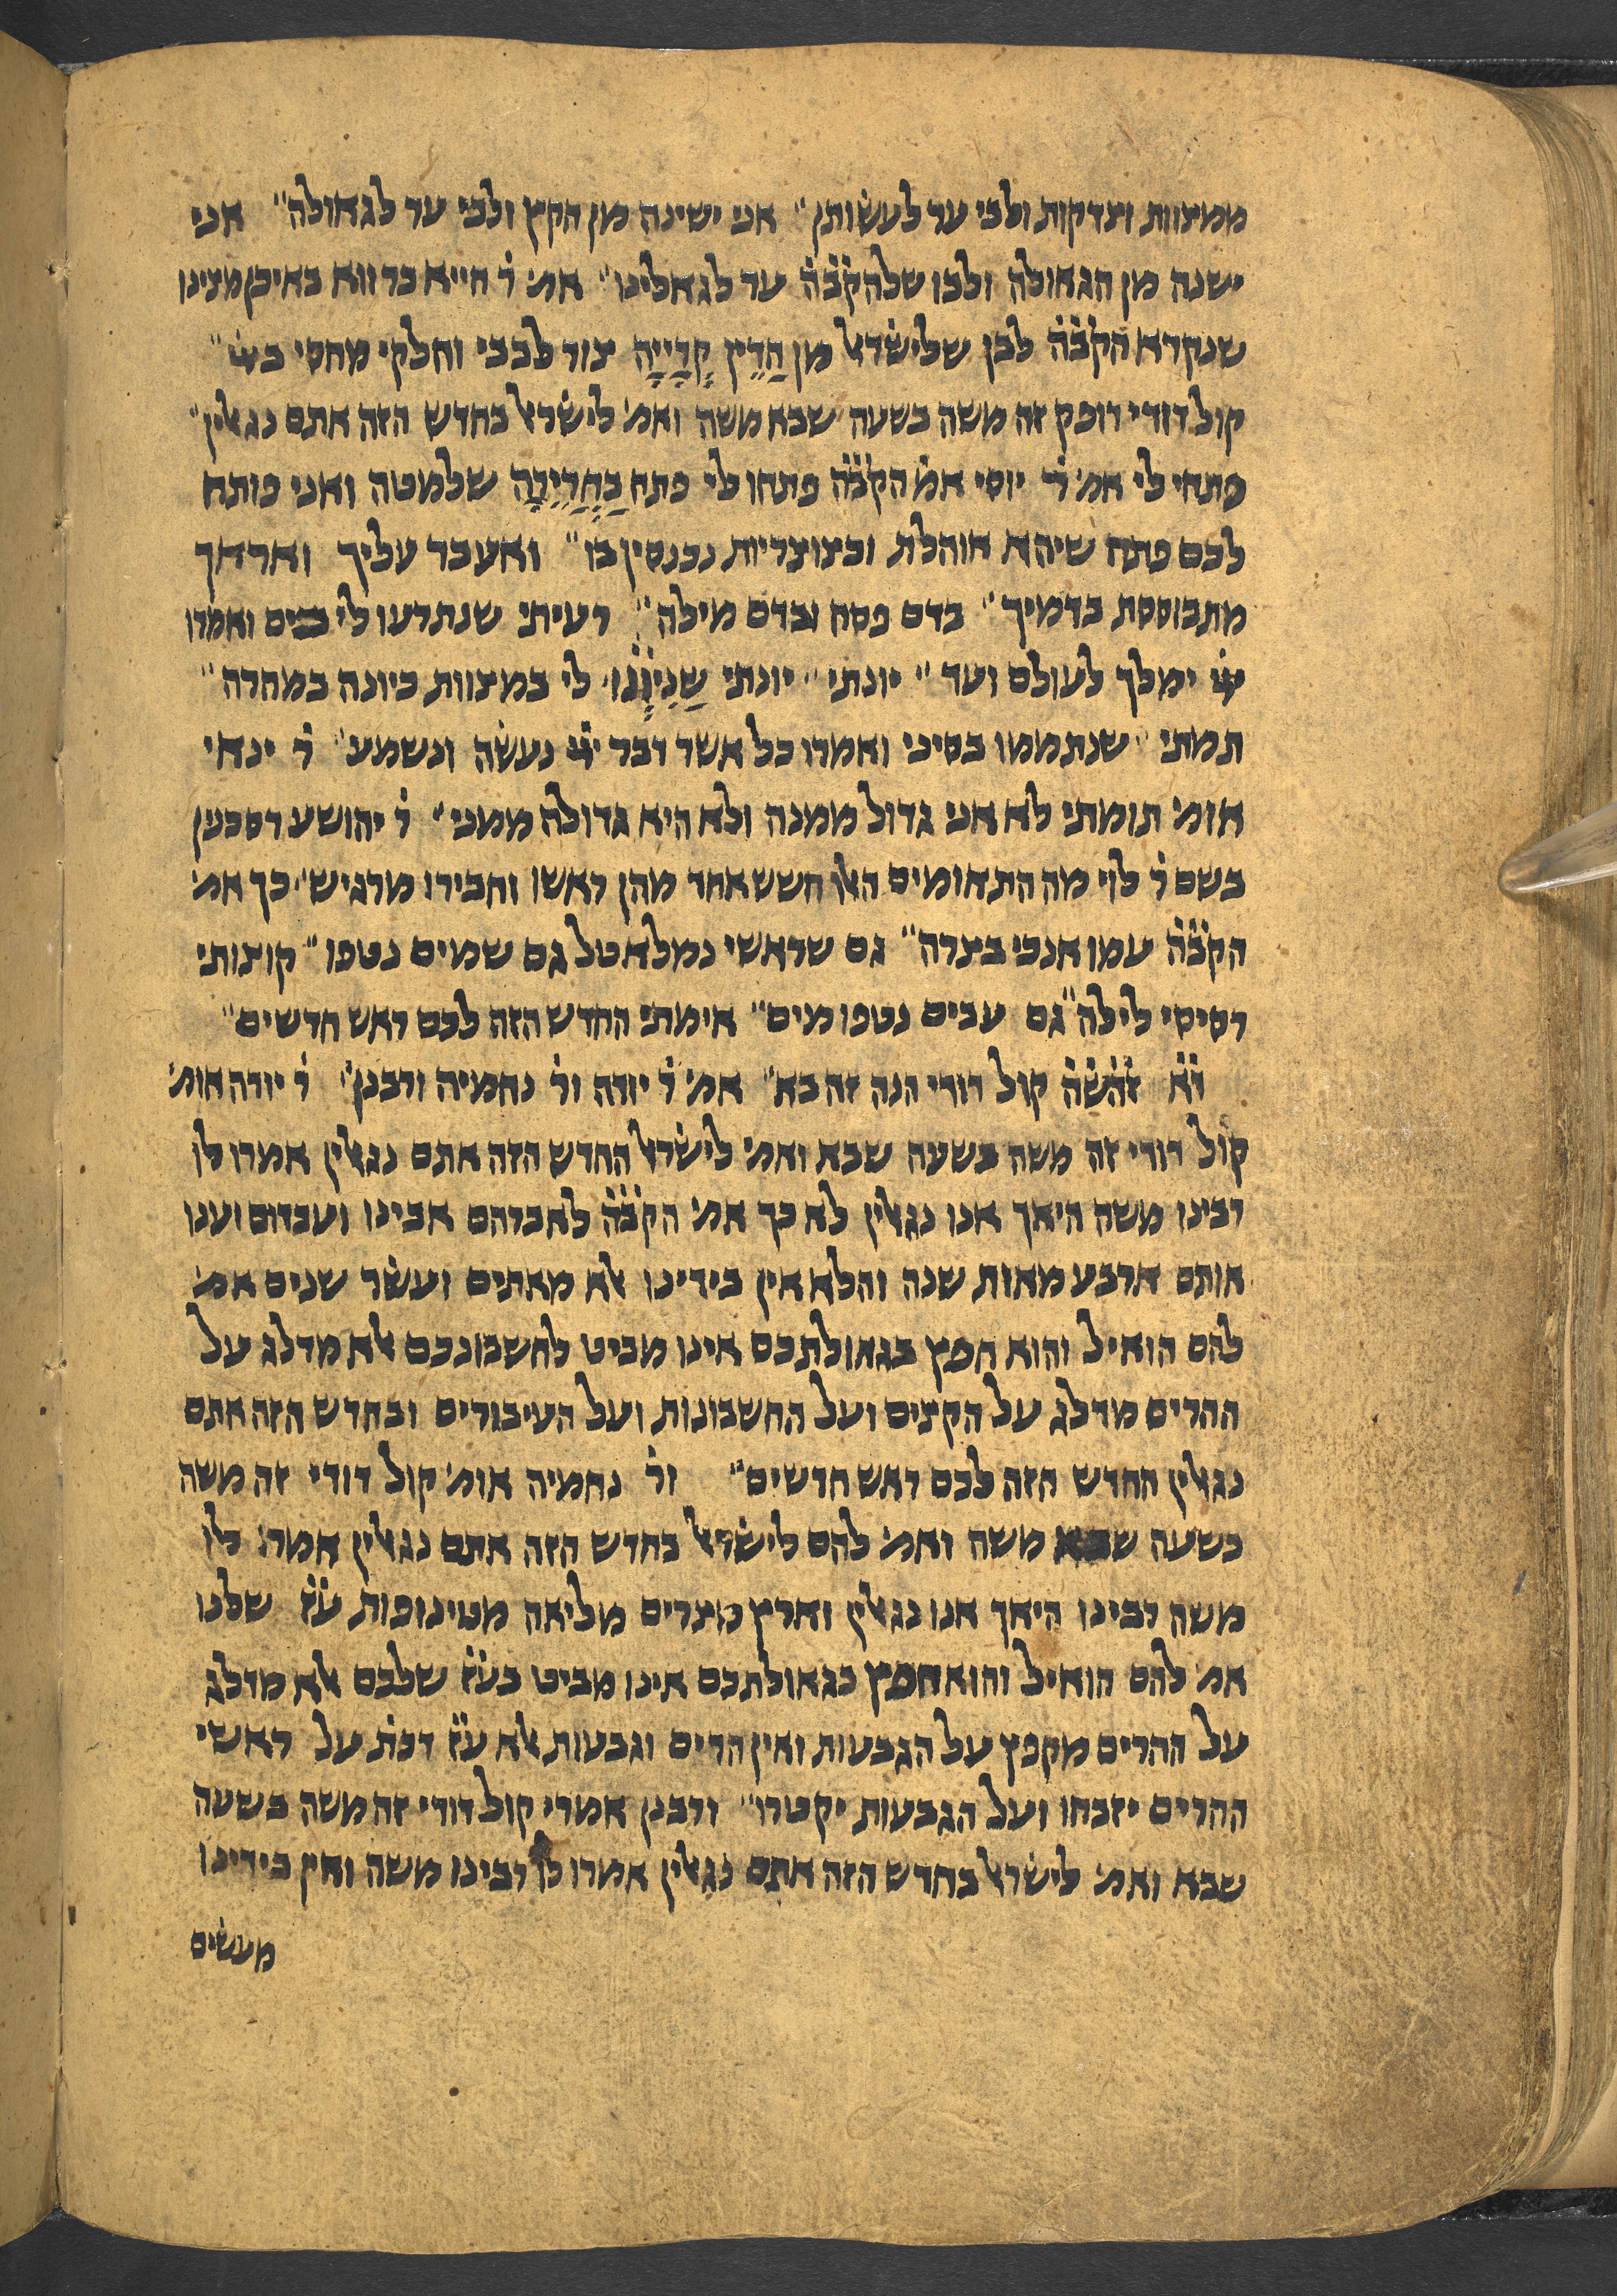 ממצוות וצדקות ולבי ער לעשותן״ אני ישינה מן הקץ ולבי ער לגאולה״ אני
ישנה מן הגאולה ולבו שלהק̇ב̇ה̇ ער לגאלינו״ אמ׳ ר̇ חייא בר ווא באיכן מצינו
שנקרא הק̇ב̇ה̇ לבן שלישׂרא׳ מן הָדֵין קְרָיָיה צור לבבי וחלקי מחסי ביי״
קול דודי דופק זה משה בשעה שבא משה ואמ׳ לישׂרא׳ בחדש הזה אתם נגאלין״
פתחי לי אמ׳ ר̇ יוסי אמ̇ הק̇ב̇ה̇ פתחו לי פתח כַחֲרֵירָה שלמטה ואני פותח
לכם פתח שיהא אוהלת וכצוצריות נכנסין בו״ ואעבר עליך ואראך
מתבוססת בדמיך״ בדם פסח ובדם מילה״ רעיתי שנתרעו לי בים ואמרו
ייי ימלך לעולם ועד״ יונתי״ יונתי שֶׁנִיּוֹנוּ לי במצוות כיונה במחרה״
תמתי״ שנתממו בסיני ואמרו כל אשר דבר ייי נעשׂה ונשמע״ ר̇ ינאי
אומ׳ תומתי לא אני גדול ממנה ולא היא גדולה ממני״ ר̇ יהושע דסכנין
בשם ר̇ לוי מה התאומים האלו חשש אחד מהן ראשו וחבירו מרגיש״ כך אמ׳
הק̇ב̇ה̇ עמו אנכי בצרה״ גם שראשי נמלא טל גם שמים נטפו״ קוצותי
רסיסי לילה״ גם עבים נטפו מים״ אימתי החדש הזה לכם ראש חדשים״
ד̇א̇ ז̇ה̇ש̇ה̇ קול דודי הנה זה בא״ אמ׳ ר̇ יודה ור̇ נחמיה ורבנן״ ר̇ יודה אומ׳
קול דודי זה משה בשעה שבא ואמ׳ לישׂרא׳ החדש הזה אתם נגאלין אמרו לו
רבינו משה היאך אנו נגאלין לא כך אמ׳ הק̇ב̇ה̇ לאברהם אבינו ועבדום וענו
אותם ארבע מאות שנה והלא אין בידינו אלא מאתים ועשׂר שנים אמ׳
להם הואיל והוא חפץ בגאולתכם אינו מביט לחשבונכם אלא מדלג על
ההרים מדלג על הקצים ועל החשבונות ועל העיבורים ובחדש הזה אתם
נגאלין החדש הזה לכם ראש חדשים״ ור̇ נחמיה אומ׳ קול דודי זה משה
בשעה שבא משה ואמ׳ להם לישׂרא׳ בחדש הזה אתם נגאלין אמרו לו
משה רבינו היאך אנו נגאלין וארץ מצרים מליאה מטינופות ע̇ז̇ שלנו
אמ׳ להם הואיל והוא חפץ בגאולתכם אינו מביט בע̇ז̇ שלכם אלא מדלג
על ההרים מקפץ על הגבעות ואין הרים וגבעות אלא ע̇ז̇ דכת̇ על ראשי
ההרים יזבחו ועל הגבעות יקטרו״ ורבנן אמרי קול דודי זה משה בשעה
שבא ואמ׳ לישׂרא׳ בחדש הזה אתם נגאלין אמרו לו רבינו משה ואין בידינו
מעשׂים